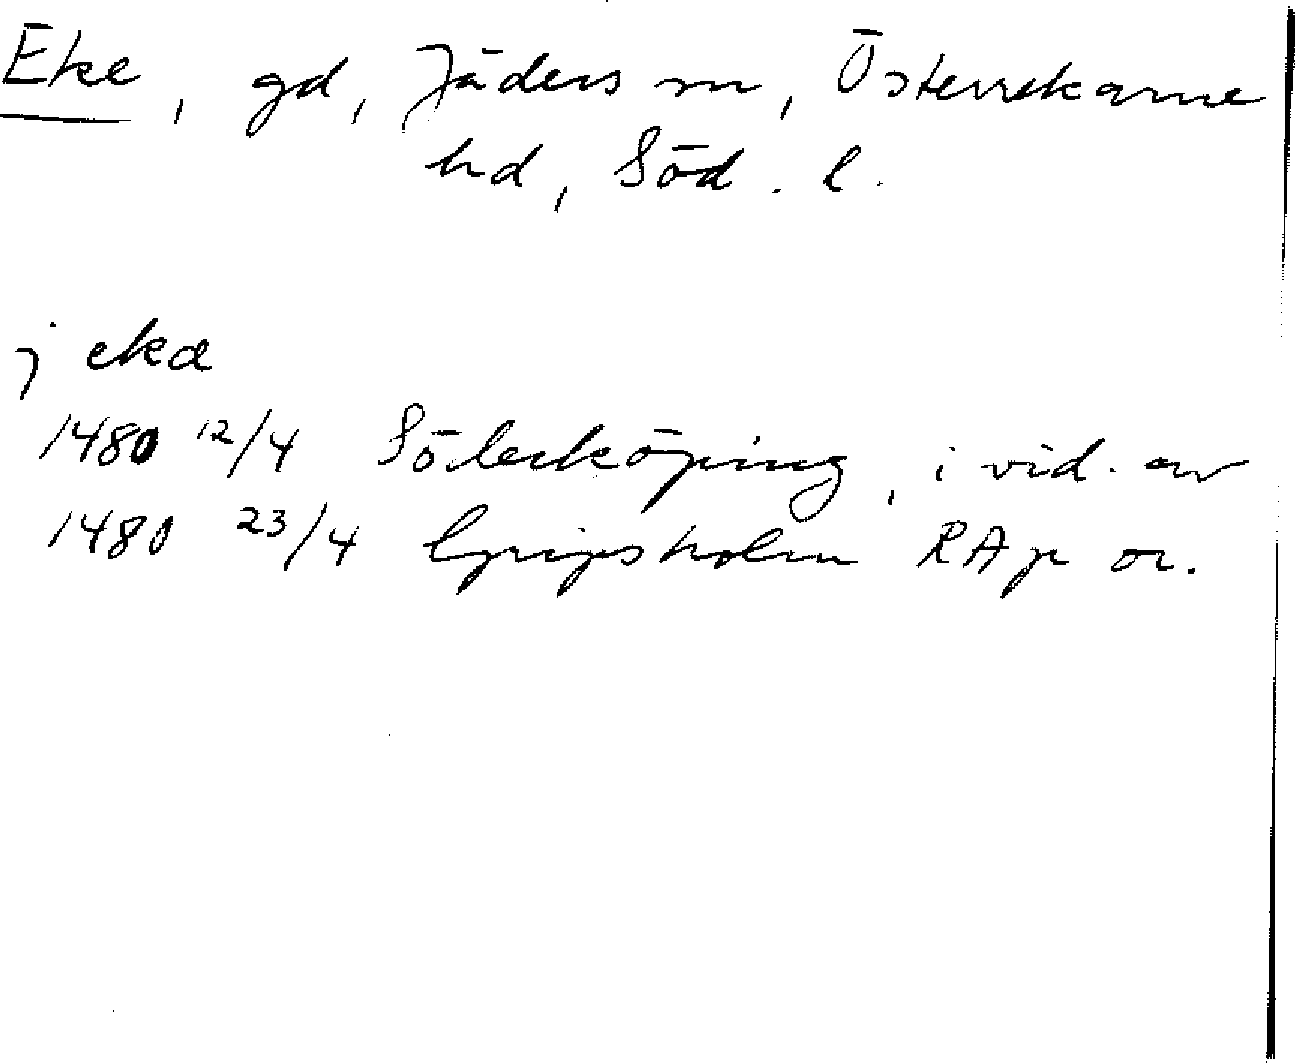 Eke, gd, Jäders sn, Österrekarne
hd, Söd. l.
j ekæ
1480 12/4 Söderköping, i vid. av
1480 23/4 Gripsholm RAp or.